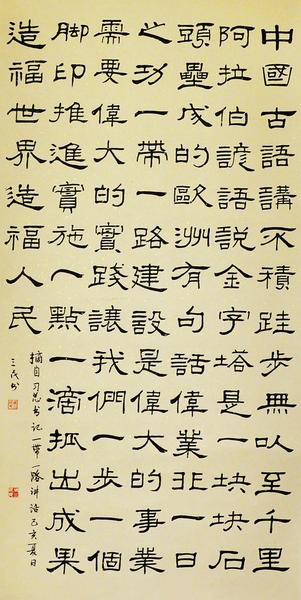 中國古語講不積跬步無以至千里
阿拉伯諺語說金字塔是一塊塊石
頭壘成的歐洲有句話偉業非一日
之功一帶一路建設是偉大的事業
需要偉大的實踐讓我們一步一個
脚印推進實施一點一滴抓出成果
造福世界造福人民
摘自习总书记一带一路讲话己亥夏日